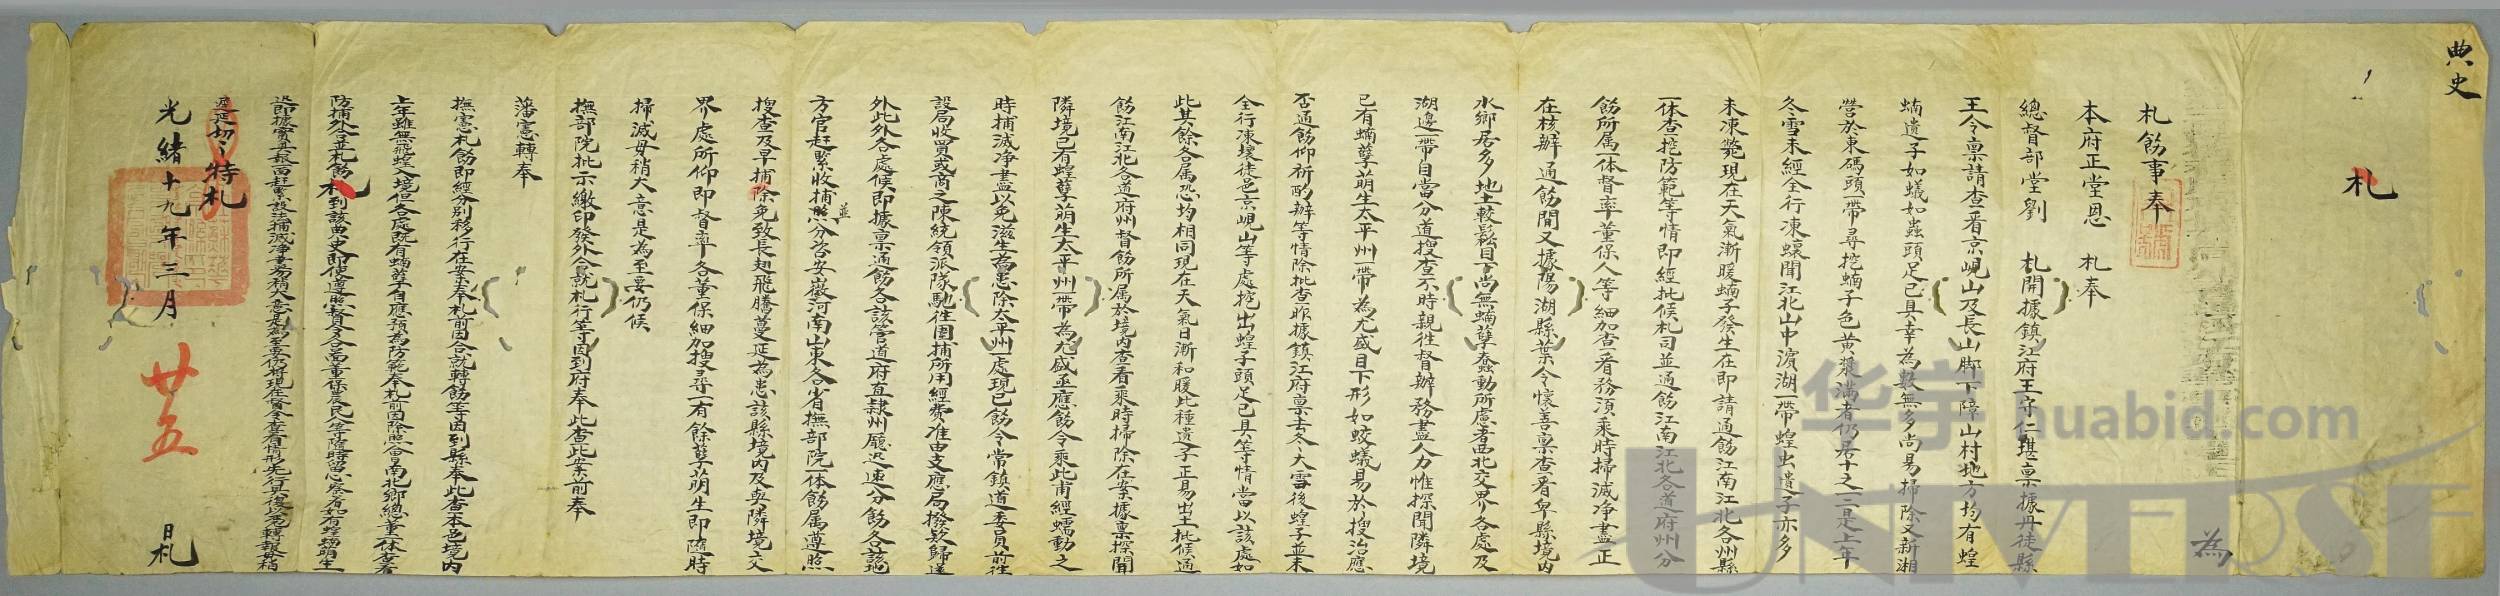 典史
札
為
札飭事奉
本府正堂恩 札奉
總督部堂劉 札開據鎮江府王守仁堪稟據丹徒縣
王令稟請查看京峴山及長山腳下障山村地方均有蝗
蝻遺子如蟻如蟲頭足已具幸為數無多尚易掃除又新湘
營於東碼頭一帶尋挖蝻子色黃漿滿者仍居十之二三是上年
冬雪未經全行凍壞聞江北山中濱湖一帶蝗虫遺子亦多
未凍斃現在天氣漸暖蝻子發生在即請通飭江南江北各州縣
一体查挖防範等情即經批候札司並通飭江南江北各道府州分
飭所属一体督率董保人等細加查看務須乘時掃滅淨盡正
在核辦通飭間又據陽湖縣葉令懷善稟查看卑縣境內
水鄉居多地土較鬆目下尚無蝻孽蠢動所慮者西北交界各處及
湖邊一帶自當分道搜查不時親徃督辦務盡人力惟探聞隣境
已有蝻孽萌生太平州一帶為尤盛目下形如蛟蟻易於搜治應
否通飭仰祈酌辦等情除批查昨據鎮江府稟去冬大雪後蝗子並未
全行凍壞徒邑京峴山等處挖出蝗子頭足已具等情當以該處如
此其餘各属恐均相同現在天氣日漸和暖此種遺子正易出土批候通
飭江南江北各道府州督飭所属於境內查看乘時掃除在案據稟探聞
隣境已有蝗孽萌生太平州一帶為尤盛亟應飭令乘此甫經蠕動之
時捕滅淨盡以免滋生為患除太平州一處現已飭令常鎮道委員前徃
設局收買或商之陳統領派隊馳徃圍捕所用經費准由支應局撥欵歸還
外此外各處候即據稟通飭各該管道府直隸州廳迅速分飭各該地
方官赶緊收捕並照分咨安徽河南山東各省撫部院一体飭属遵照
搜查及早捕除免致長翅飛騰蔓延為患該縣境內及與隣境交
界處所仰即督率各董保細加搜尋一有餘孽萌生即隨時
掃滅毋稍大意是為至要仍候
撫部院批示繳印發外合就札行等因到府奉此查此案前奉
藩憲轉奉
撫憲札飭即經分别移行在案奉札前因合就轉飭等因到縣奉此查本邑境內
上年雖無飛蝗入境但各處既有蝻孽自應預為防範奉札前因除照會南北鄉總董一体查看
防捕外合並札飭札到該典史即使遵照督具各啚董保農民等隨時留心察看如有蝗蝻萌生
迅即據實具報一面赶緊設法捕滅淨盡勿稍大意是為至要仍將現在督令查看情形先行具復以憑轉報毋稍
遲延切切特札
光緒十九年三月 廿五 日札
華宇 huabid.com
UNIVERSE